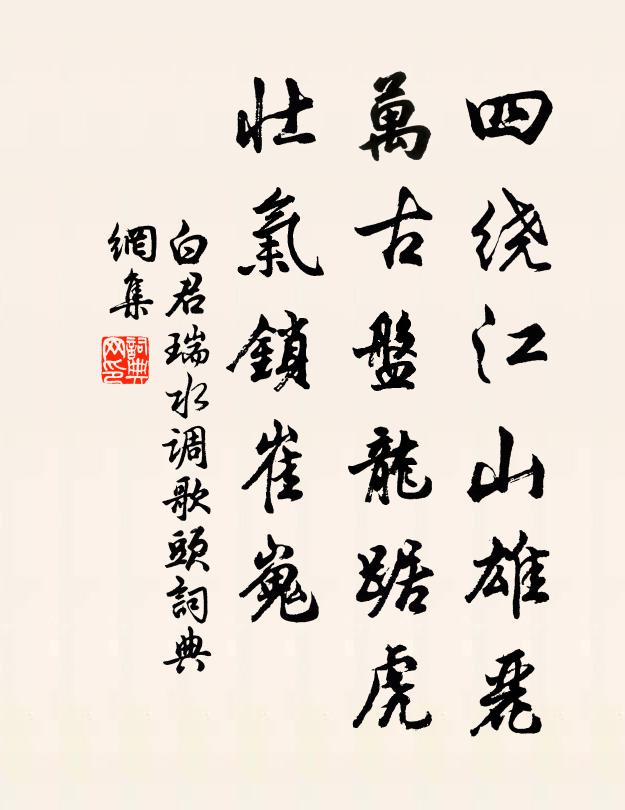 四绕江山雄麗
萬古盤龍踞虎
壯氣鎖崔嵬
白君瑞水调歌頭詞典
網集
詞典
网印